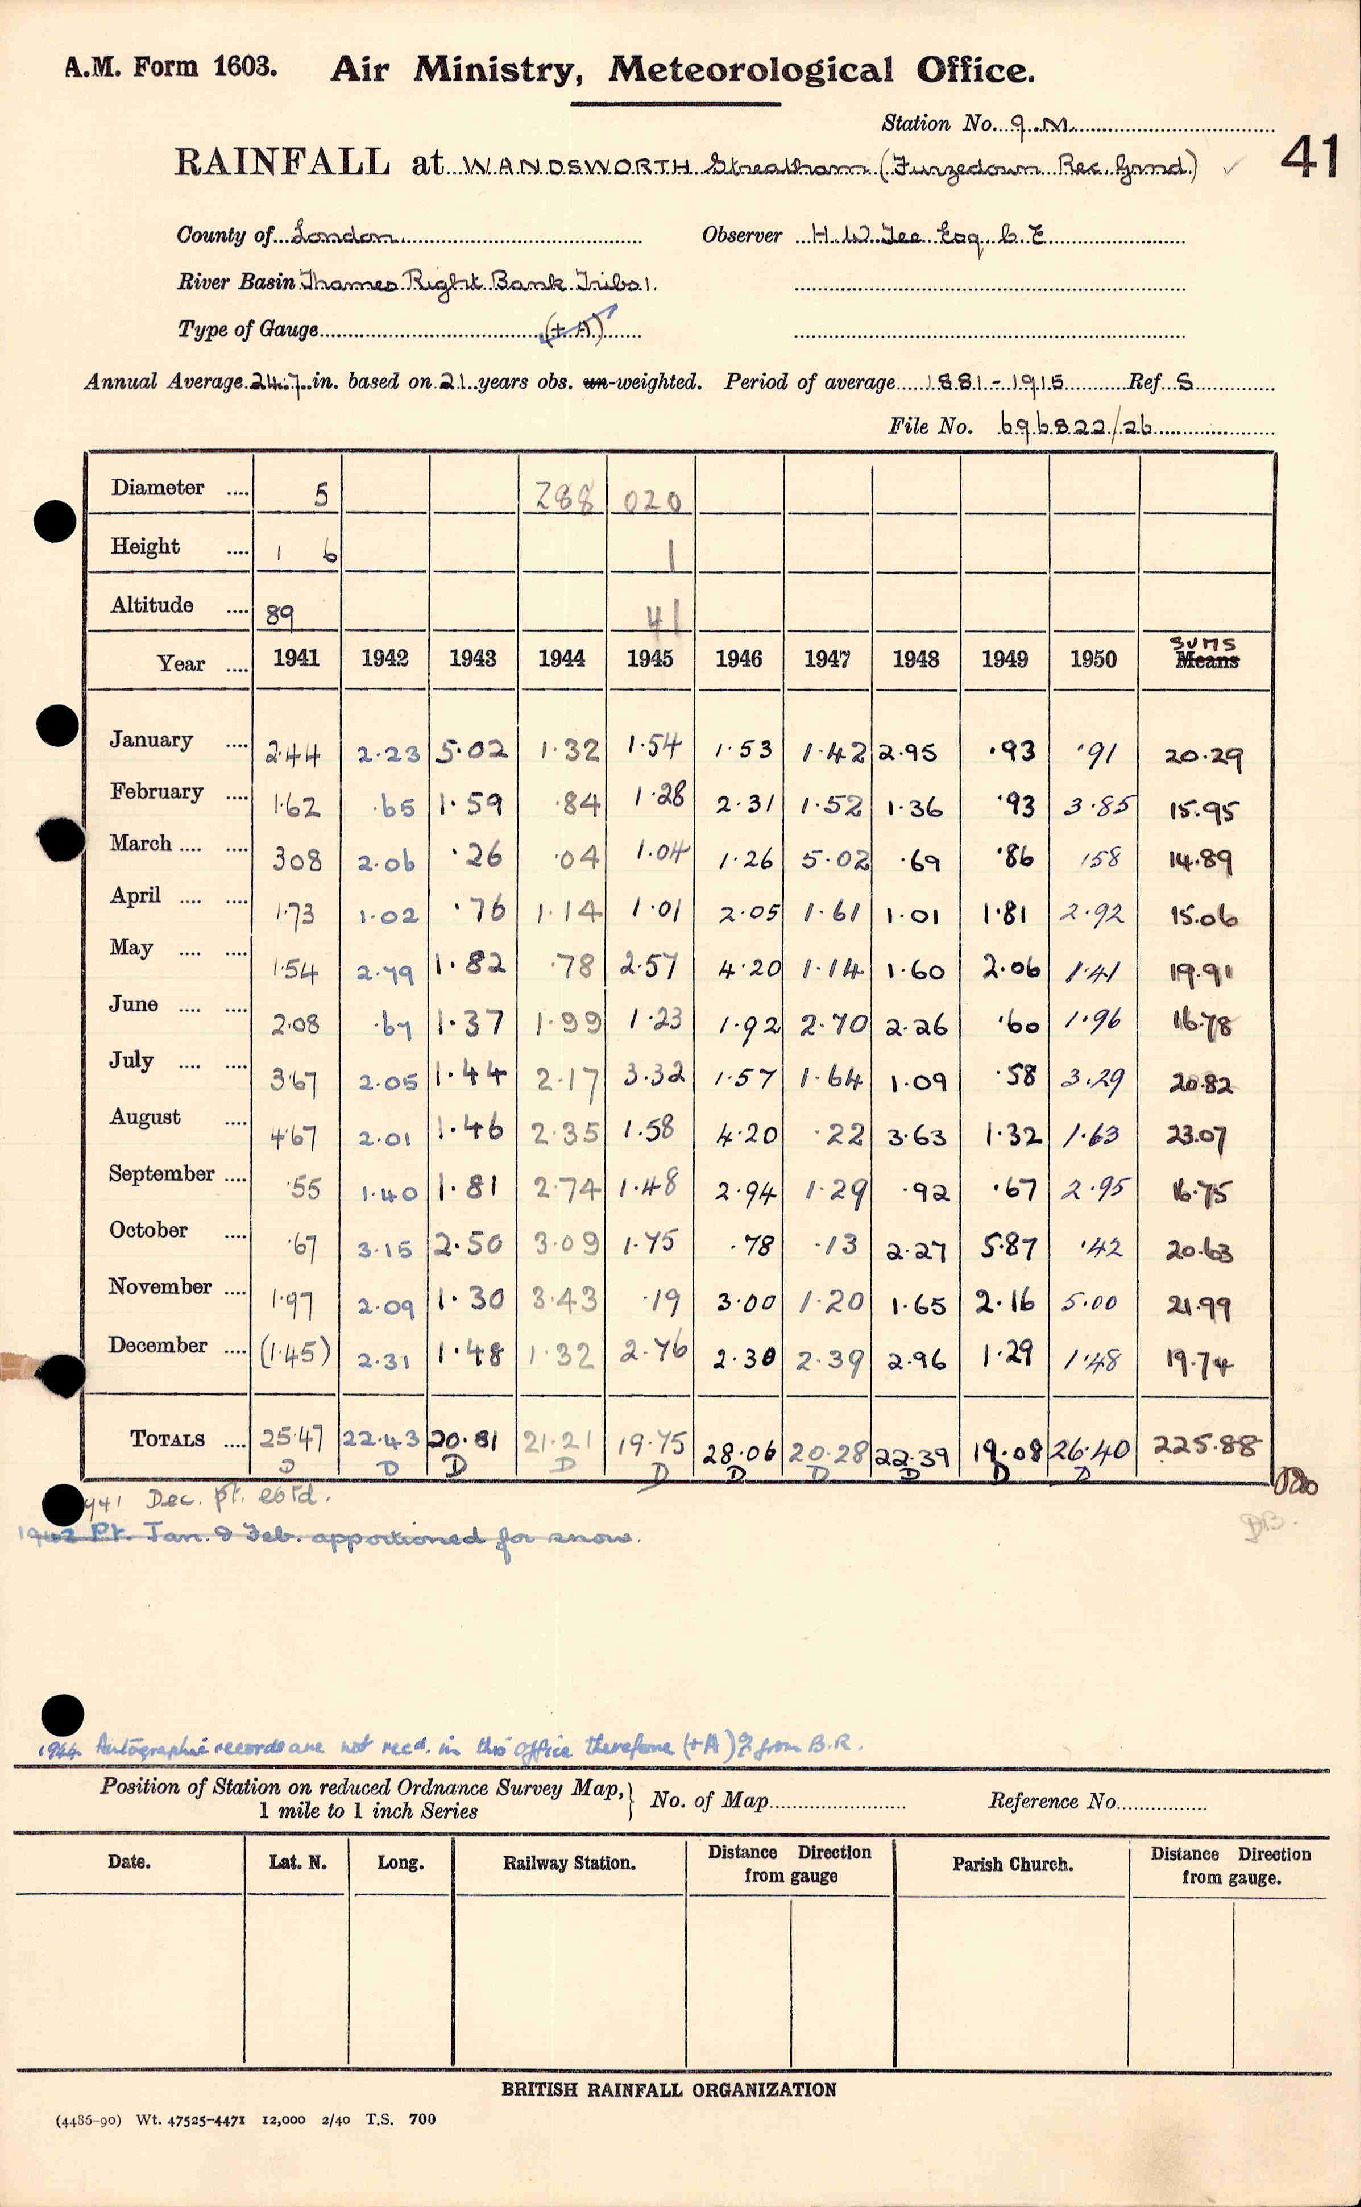 A.M. Form 1603. Air Ministry, Meteorological Office.
Station No. 9.M.
RAINFALL at WANDSWORTH Streatham (Furzedown Rec. Grnd.) ✓ 41
County of London Observer H.W. Tee Esq. C.E
River Basin Thames Right Bank Tribs 1.
Type of Gauge (+A)
Annual Average 24.7 in. based on 21 years obs. un-weighted. Period of average 1881-1915 Ref S
File No. 696822/26
Diameter .... 5 288 020
Height .... 1 6 1
Altitude .... 89 41
SUMS
Year .... 1941 1942 1943 1944 1945 1946 1947 1948 1949 1950 Means
January .... 2.44 2.23 5.02 1.32 1.54 1.53 1.42 2.95 .93 .91 20.29
February .... 1.62 .65 1.59 .84 1.28 2.31 1.52 1.36 .93 3.85 15.95
March .... .... 3.08 2.06 .26 .04 1.04 1.26 5.02 .69 .86 .58 14.89
April .... .... 1.73 1.02 .76 1.14 1.01 2.05 1.61 1.01 1.81 2.92 15.06
May .... .... 1.54 2.79 1.82 .78 2.57 4.20 1.14 1.60 2.06 1.41 19.91
June .... .... 2.08 .67 1.37 1.99 1.23 1.92 2.70 2.26 .60 1.96 16.78
July .... .... 3.67 2.05 1.44 2.17 3.32 1.57 1.64 1.09 .58 3.29 20.82
August .... 4.67 2.01 1.46 2.35 1.58 4.20 .22 3.63 1.32 1.63 23.07
September .... .55 1.40 1.81 2.74 1.48 2.94 1.29 .92 .67 2.95 16.75
October .... .67 3.15 2.50 3.09 1.75 .78 .13 2.27 5.87 .42 20.63
November .... 1.97 2.09 1.30 3.43 .19 3.00 1.20 1.65 2.16 5.00 21.99
December .... (1.45) 2.31 1.48 1.32 2.76 2.30 2.39 2.96 1.29 1.48 19.74
TOTALS .... 25.47 22.43 20.81 21.21 19.75 28.06 20.28 22.39 19.08 26.40 225.88
D D D D D D D D D D
1941 Dec. pt. estd.
DB.
1942 Pt. Jan. & Feb. apportioned for snow.
1944 Autographic records are not recd. in this office therefore (+A) from B.R.
Position of Station on reduced Ordnance Survey Map,
1 mile to 1 inch Series
No. of Map Reference No.
Date. Lat. N. Long. Railway Station. Distance from gauge Direction Parish Church. Distance Direction from gauge.
BRITISH RAINFALL ORGANIZATION
(4486-90) Wt. 47525-4471 12,000 2/40 T.S. 700